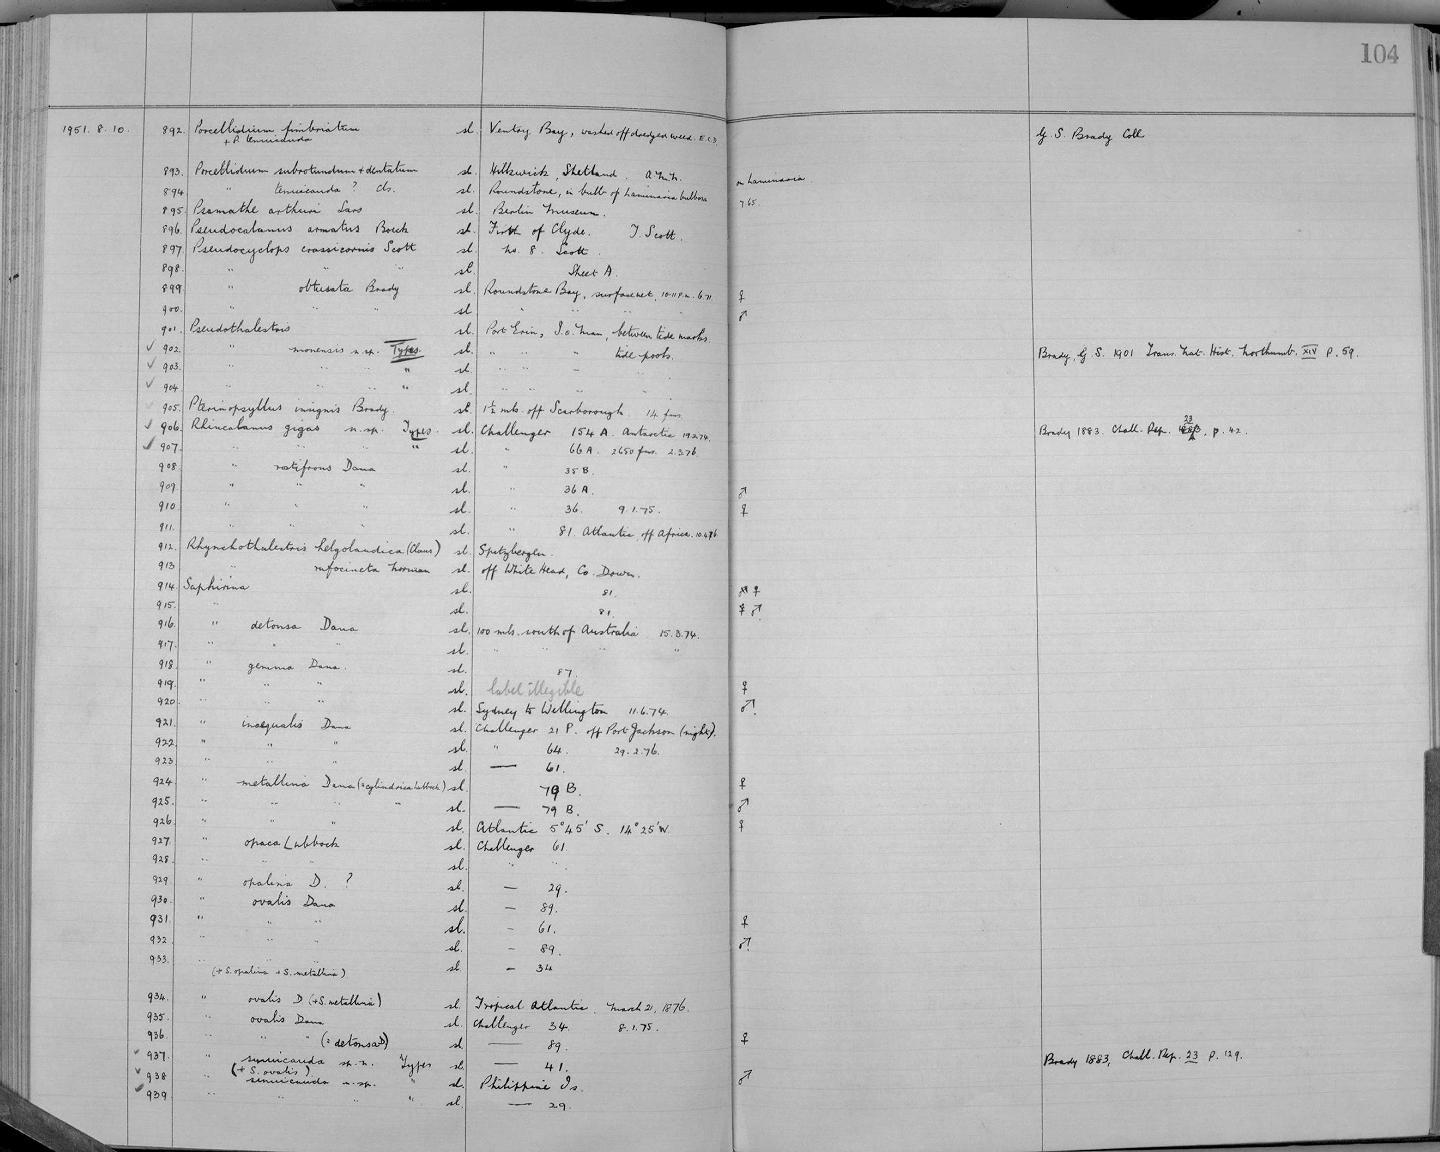 104
1951. 8. 10. 892. Porcellidium fimbriatum sl. Ventry Bay, washed off dredged weed. E.C.D. G. S. Brady Coll.
+ P. tenuicauda
893. Porcellidium subrotundum + dentatum sl. Hillswick, Shetland. A.M.N. on Laminaria
894 " tenuicauda ? Cls. sl. Roundstone, in bulb of Laminaria bulbosa 7.65.
895. Psamathe arthuri Sars sl. Berlin Museum.
896. Pseudocalanus armatus Boeck sl. Firth of Clyde. T. Scott.
897. Pseudocyclops crassicornis Scott sl. No. 8. Scott
898. " " " sl. Sheet A.
899. " obtusata Brady sl. Roundstone Bay, surface net, 10-11 p.m. 6.71. ♀
900. " " " sl. " " " ♂
901. Pseudothalestris sl. Port Erin, I.o.Man, between tide marks.
902. " monensis n. sp. Types. sl. " " " tide pools. Brady, G. S. 1901 Trans. Nat. Hist. Northumb. XIV p. 59.
903. " " " " sl. " " "
904 " " " " sl. " " "
905. Pterinopsyllus insignis Brady. sl. 1½ mls. off Scarborough 14 fms.
906. Rhincalanus gigas n. sp. Types. sl. Challenger 154 A. Antarctic 19.2.74. Brady 1883. Chall. Rep. 23, p. 42.
907. " " " " sl. " 66 A. 2650 fms. 2.3.76.
908. " rostifrons Dana sl. " 35 B.
909. " " " sl. " 36 A. ♂
910 " " " sl. " 36. 9.1.75. ♀
911. " " " sl. " 81. Atlantic off Africa. 10.4.76
912. Rhynchothalestris helgolandica (Claus) sl. Spitzbergen.
913 " rufocincta Norman sl. off White Head, Co. Down.
914. Saphirina sl. 81. ♀
915. " sl. 81. ♀ ♂
916. " detonsa Dana sl. 100 mls. south of Australia 15.3.74.
917. " " " sl. " " " "
918 " gemma Dana. sl. 87.
919. " " " sl. label illegible ♀
920. " " " sl. Sydney to Wellington 11.6.74. ♂
921. " inaequalis Dana sl. Challenger 21 P. off Port Jackson (night).
922. " " " sl. " 64. 29.2.76.
923 " " " sl. — 61.
924 " metallina Dana (= cylindrica Lubbock) sl. 79 B. ♀
925. " " " " sl. — 79 B. ♂
926. " " " sl. Atlantic 5°45' S. 14°25' W. ♀
927. " opaca Lubbock sl. Challenger 61.
928. " " " sl. " "
929. " opalina D. ? sl. — 29.
930. " ovalis Dana sl. — 89.
931. " " " sl. — 61. ♀
932 " " " sl. — 89. ♂
933. " " "
(+ S. opalina + S. metallina) sl. — 34
934. " ovalis D (+ S. metallina) sl. Tropical Atlantic. March 21, 1876.
935. " ovalis Dana sl. Challenger 34. 8.1.75.
936 " " " (= detonsa D) sl — 89. ♀
937. " sinuicauda sp. n. Types sl. — 41. Brady 1883, Chall. Rep. 23 p. 129.
(+ S. ovalis)
938 " sinuicauda n. sp. " sl. Philippine Is. ♂
939 " " " " sl. — 29.